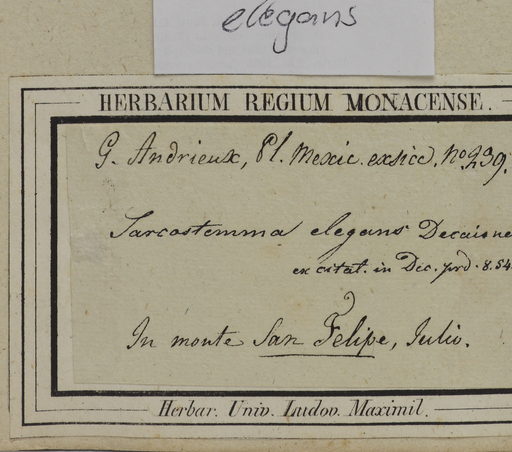 elegans
HERBARIUM REGIUM MONACENSE.
G. Andrieux, Pl. Mexic. exsicc. No 239.
Sarcostemma elegans Decaisne
ex citat. in Dec. prd. 8. 54
In monte San Felipe, Julio.
Herbar. Univ. Ludov. Maximil.